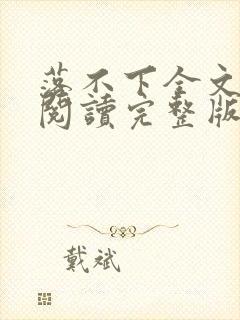 落不下全文
閱讀完整版
戴斌